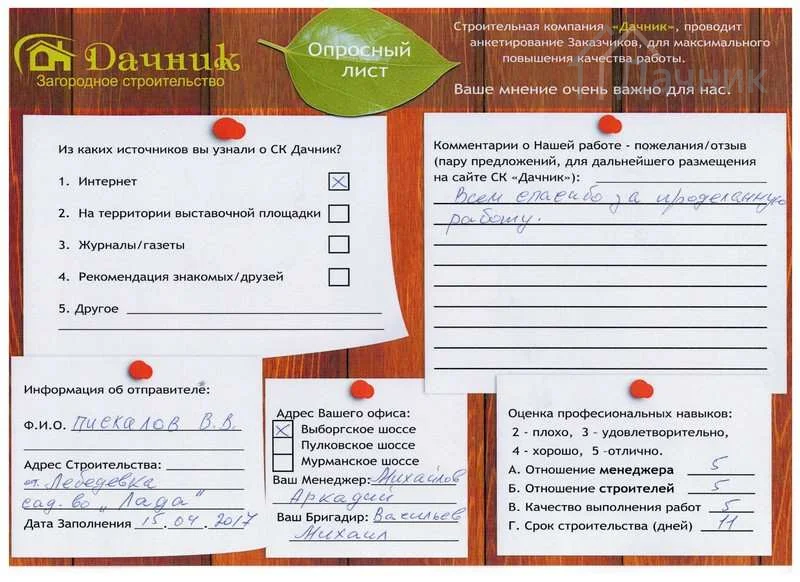 Дачник
Загородное строительство
Опросный
лист
Строительная компания «Дачник», проводит
анкетирование Заказчиков, для максимального
повышения качества работы.
Ваше мнение очень важно для нас.
Дачник
Из каких источников вы узнали о СК Дачник?
1. Интернет
2. На территории выставочной площадки
3. Журналы/газеты
4. Рекомендация знакомых/друзей
5. Другое
Комментарии о Нашей работе - пожелания/отзыв
(пару предложений, для дальнейшего размещения
на сайте СК «Дачник»):
Всем спасибо за проделанную
работу.
Информация об отправителе:
Ф.И.О. Пискалов В.В.
Адрес Строительства:
ст. Лебедевка
сад-во „Лада"
Дата Заполнения 15.04.2017
Адрес Вашего офиса:
Выборгское шоссе
Пулковское шоссе
Мурманское шоссе
Ваш Менеджер: Михайлов
Аркадий
Ваш Бригадир: Васильев
Михаил
Оценка професиональных навыков:
2 - плохо, 3 - удовлетворительно,
4 - хорошо, 5 -отлично.
А. Отношение менеджера 5
Б. Отношение строителей 5
В. Качество выполнения работ 5
Г. Срок строительства (дней) 11